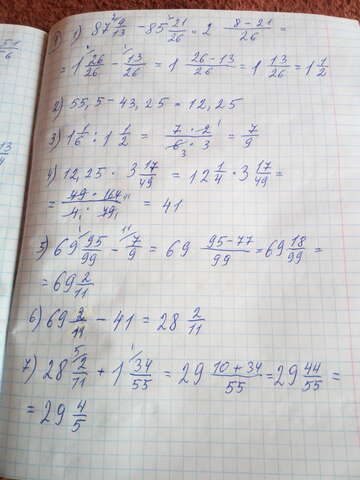 1) 87 4/13 - 85 21/26 = 2 8-21/26 =
= 1 26/26 - 13/26 = 1 26-13/26 = 1 13/26 = 1 1/2
2) 55,5 - 43,25 = 12,25
3) 1 1/6 : 1 1/2 = 7·2/6·3 = 7/9
4) 12,25 · 3 17/49 = 12 1/4 · 3 17/49 =
= 49·164/4·49 = 41
5) 69 95/99 - 7/9 = 69 95-77/99 = 69 18/99 =
= 69 2/11
6) 69 2/11 - 41 = 28 2/11
7) 28 2/11 + 1 34/55 = 29 10+34/55 = 29 44/55 =
= 29 4/5